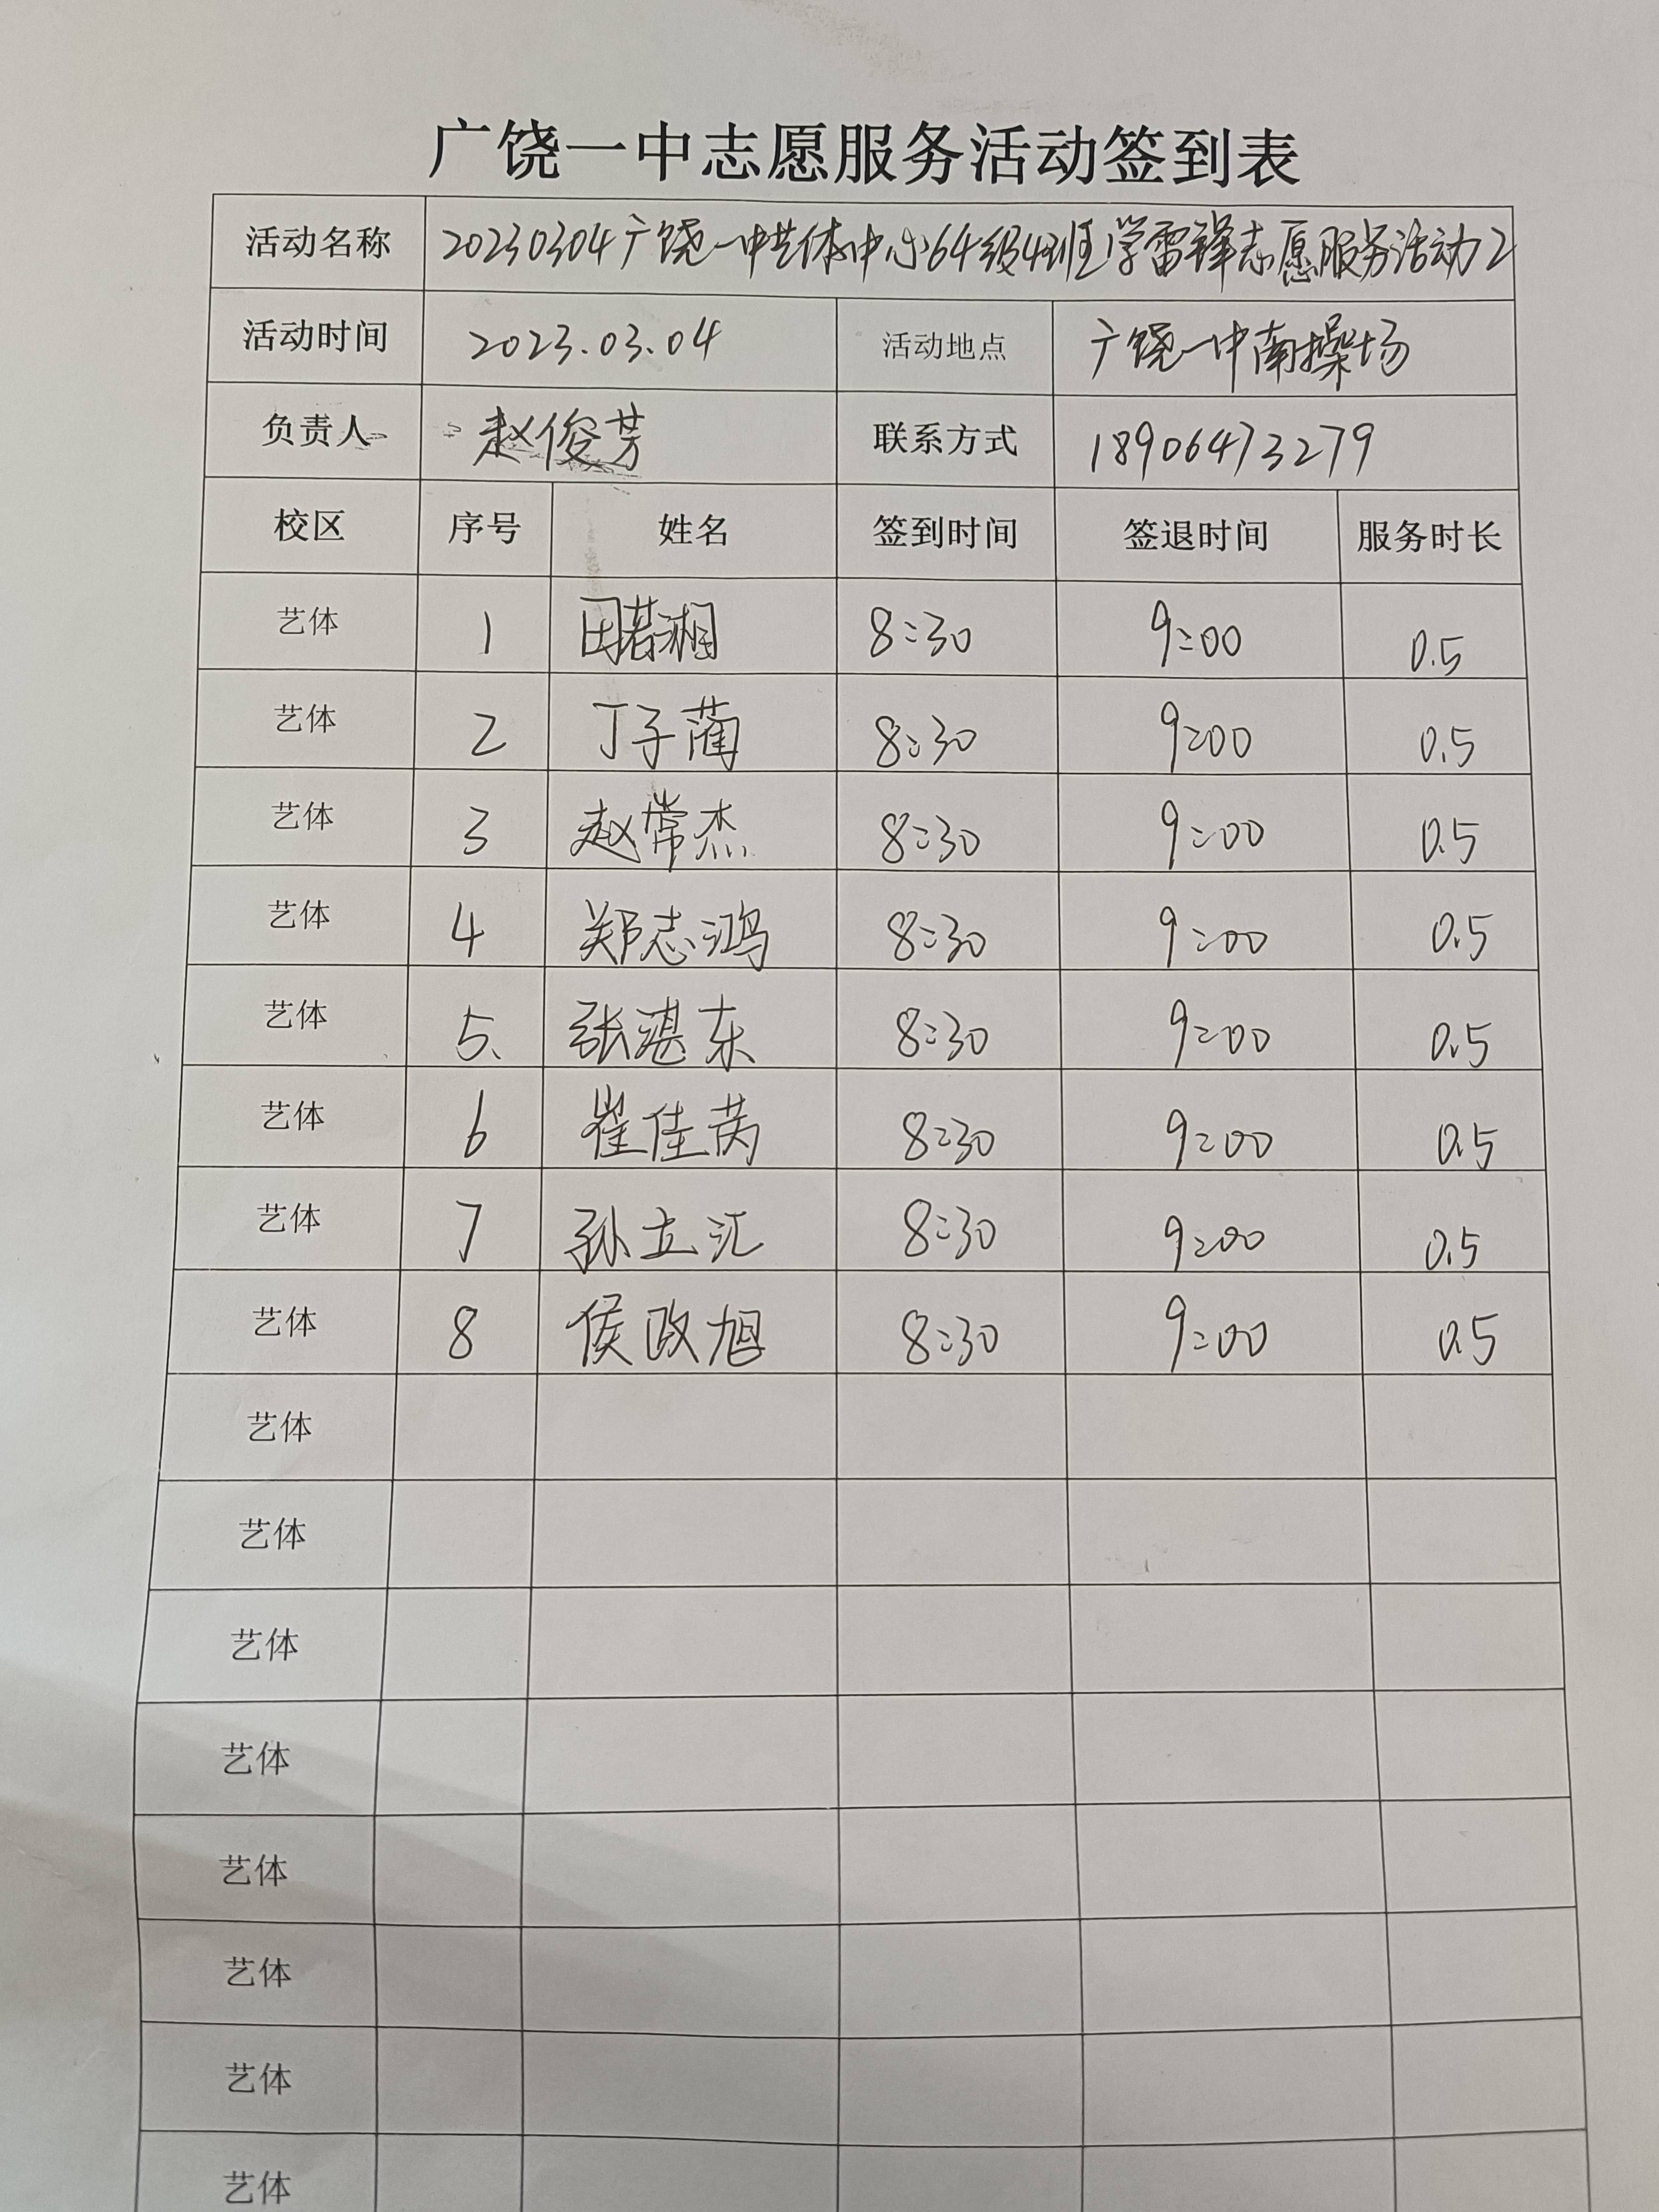 广饶一中志愿服务活动签到表
活动名称 20230304广饶一中艺体中心64级4班学雷锋志愿服务活动2
活动时间 2023.03.04 活动地点 广饶一中南操场
负责人 赵俊芳 联系方式 18906473279
校区 序号 姓名 签到时间 签退时间 服务时长
艺体 1 田若湘 8:30 9:00 0.5
艺体 2 丁子蔺 8:30 9:00 0.5
艺体 3 赵常杰 8:30 9:00 0.5
艺体 4 郑志鸿 8:30 9:00 0.5
艺体 5、 张湛东 8:30 9:00 0.5
艺体 6 崔佳 8:30 9:00 0.5
艺体 7 孙立汇 8:30 9:00 0.5
艺体 8 侯政旭 8:30 9:00 0.5
艺体
艺体
艺体
艺体
艺体
艺体
艺体
艺体